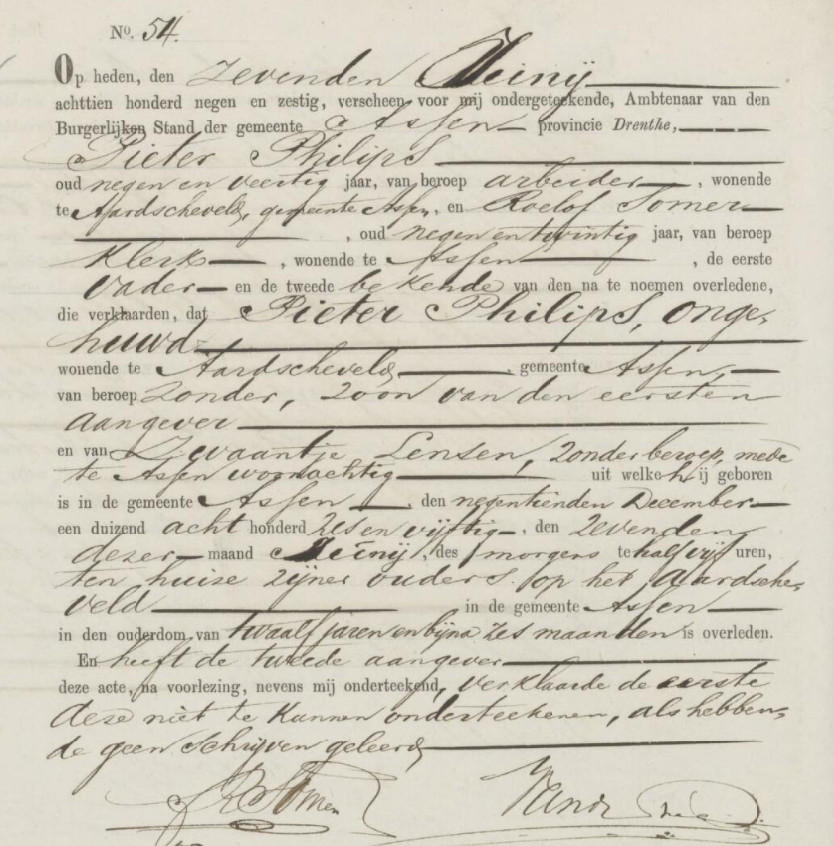 No. 54.
Op heden, den zevenden Junij
achttien honderd negen en zestig, verscheen voor mij ondergeteekende, Ambtenaar van den
Burgerlijken Stand der gemeente Assen provincie Drenthe,
Pieter Philips
oud negen en veertig jaar, van beroep arbeider, wonende
te Aardscheveld, gemeente Assen, en Roelof Somer
, oud negen en twintig jaar, van beroep
Klerk, wonende te Assen, de eerste
Vader en de tweede bekende van den na te noemen overledene,
die verklaarden, dat Pieter Philips, onge-
huwd
wonende te Aardscheveld, gemeente Assen,
van beroep zonder, zoon van den eersten
aangever
en van Zwaantje Lensen, zonder beroep, mede
te Assen woonachtig uit welke hij geboren
is in de gemeente Assen, den negentienden December
een duizend acht honderd zes en vijftig, den zevenden
dezer maand Junij, des morgens te half vijf uren,
ten huize zijner ouders op het Aardsche-
veld in de gemeente Assen
in den ouderdom van twaalf jaren en bijna zes maanden is overleden.
En heeft de tweede aangever
deze acte, na voorlezing, nevens mij onderteekend, verklaarde de eerste
deze niet te kunnen onderteekenen, als hebben-
de geen schrijven geleerd
R Somer